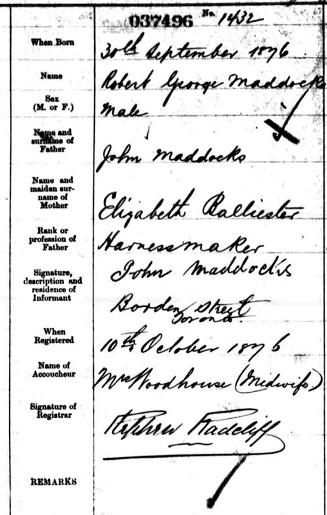 037496 No. 1432
When Born 30th September 1876
Name Robert George Maddocks
Sex
(M. or F.) Male
Name and
surname of
Father John Maddocks
Name and
maiden sur-
name of
Mother Elizabeth Balliester
Rank or
profession of
Father Harnessmaker
Signature,
description and
residence of
Informant John Maddocks
Borden Street
Toronto
When
Registered 10th October 1876
Name of
Accoucheur Mrs Woodhouse (Midwife)
Signature of
Registrar Radcliff
REMARKS